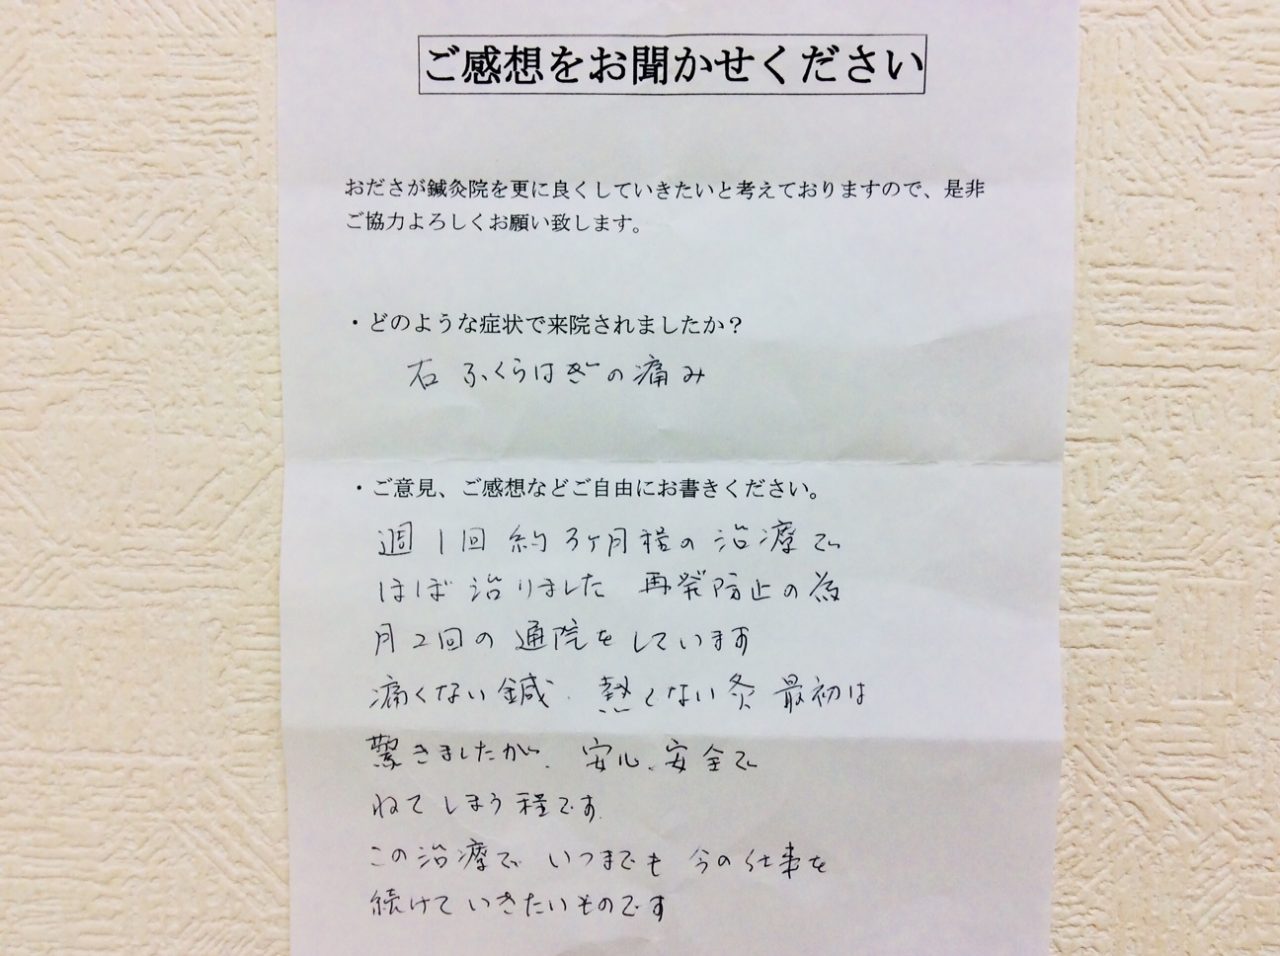 ご感想をお聞かせください
おださが鍼灸院を更に良くしていきたいと考えておりますので、是非
ご協力よろしくお願い致します。
・どのような症状で来院されましたか？
右 ふくらはぎの痛み
・ご意見、ご感想などご自由にお書きください。
週1回 約3ケ月程の治療で
ほぼ治りました 再発防止の為
月2回の通院をしています
痛くない鍼、熱くない灸 最初は
驚きましたが、安心、安全で
ねてしまう程です。
この治療で いつまでも 今の仕事を
続けていきたいものです